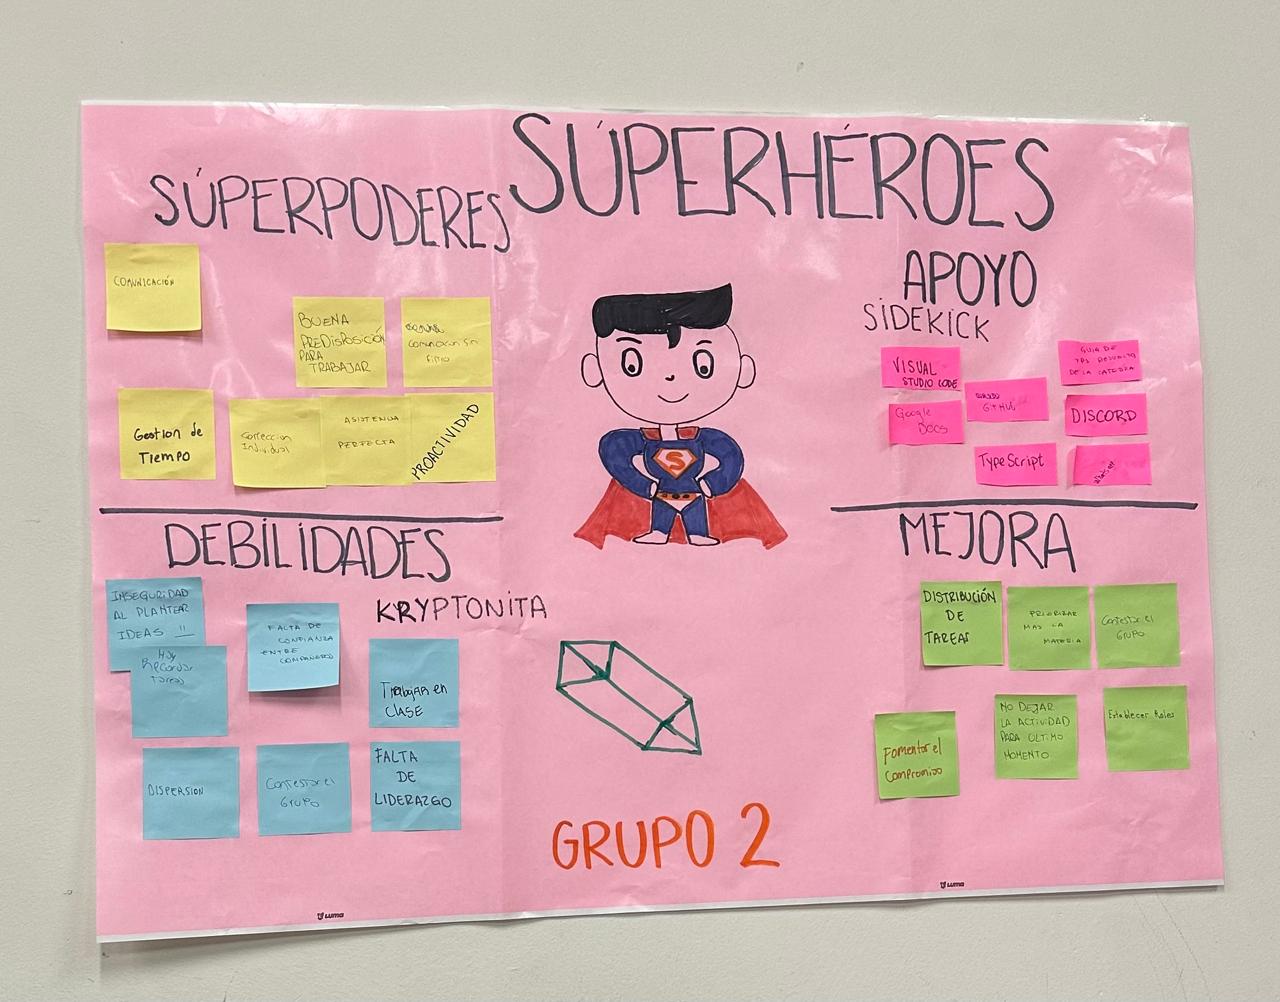 SÚPERHÉROES
SÚPERPODERES
COMUNICACIÓN
BUENA
PREDISPOSICIÓN
PARA
TRABAJAR
comunicacion sin
filtro
Gestion de
Tiempo
Correccion
Individual
ASISTENCIA
PERFECTA
PROACTIVIDAD
APOYO
SIDEKICK
VISUAL
STUDIO CODE
GUIA DE
TPS RESUELTO
DE LA CATEDRA
GITHUB
Google
Docs
DISCORD
TypeScript
DEBILIDADES
KRYPTONITA
INSEGURIDAD
AL PLANTEAR
IDEAS !!
Hay
Recordar
Tareas
FALTA DE
CONFIANZA
ENTRE
COMPAÑEROS
Trabajar en
CLASE
DISPERSION
Contestar el
Grupo
FALTA
DE
LIDERAZGO
MEJORA
DISTRIBUCIÓN
DE
TAREAS
PRIORIZAR
MAS LA
MATERIA
Contestar el
Grupo
Fomentar el
Compromiso
NO DEJAR
LA ACTIVIDAD
PARA ULTIMO
MOMENTO
Establecer Roles
S
GRUPO 2
Luma
Luma